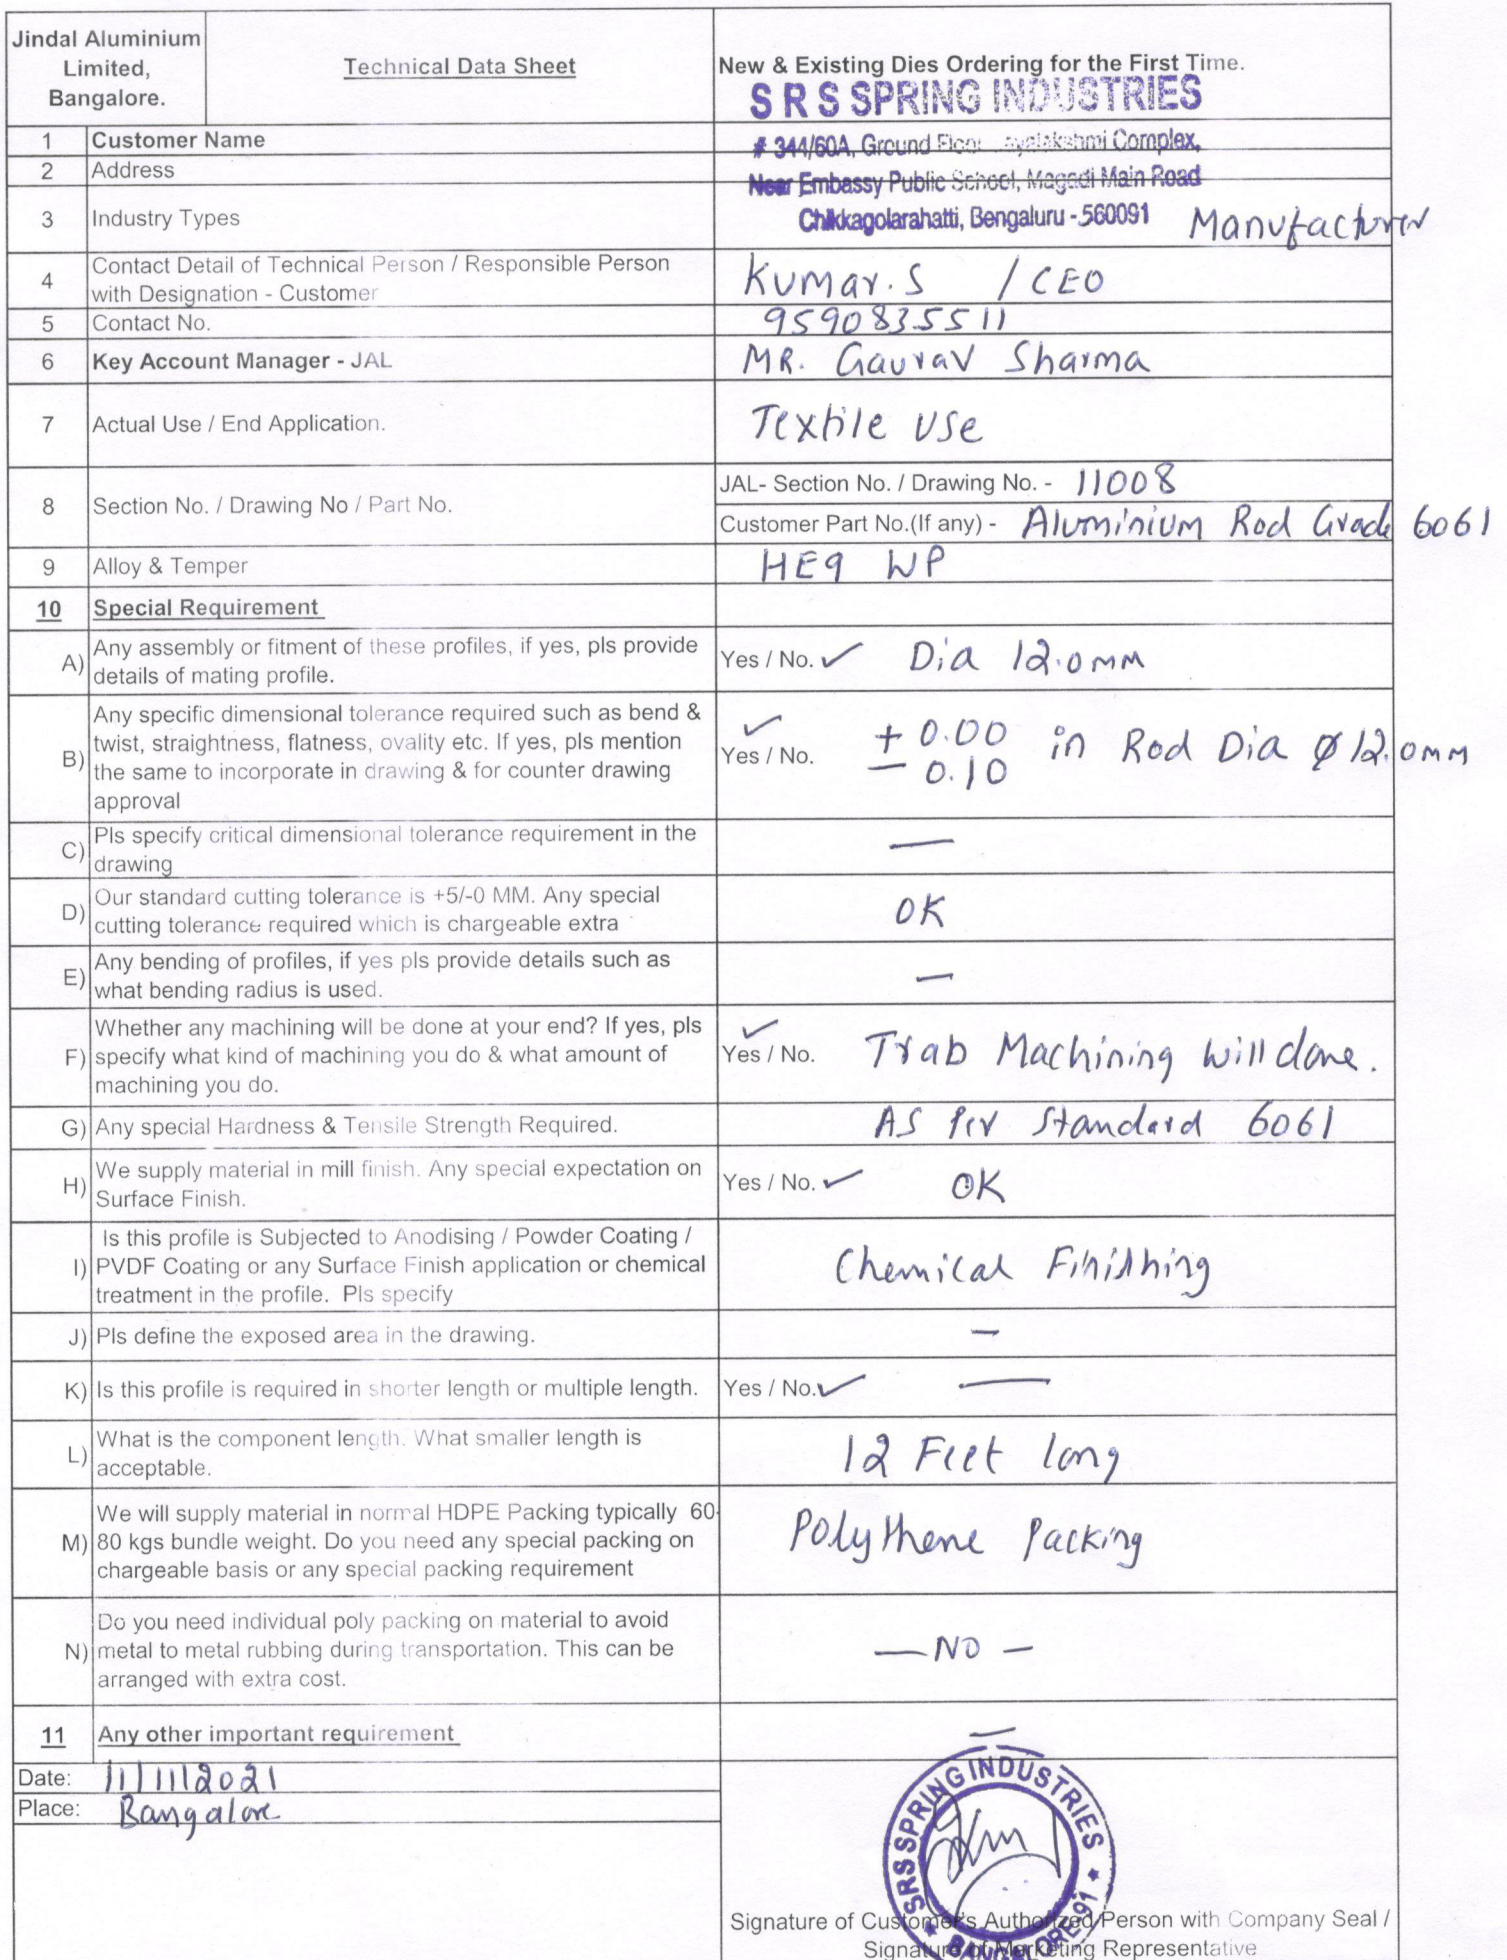 Jindal Aluminium
Limited,
Bangalore.
Technical Data Sheet
New & Existing Dies Ordering for the First Time.
S R S SPRING INDUSTRIES
1 Customer Name
# 344/60A, Ground Complex,
2 Address
Near Embassy Public School, Magadi Main Road
3 Industry Types
Chikkagolarahatti, Bengaluru - 560091 Manufacturer
4 Contact Detail of Technical Person / Responsible Person
with Designation - Customer
Kumar. S / CEO
5 Contact No. 9590835511
6 Key Account Manager - JAL MR. Gaurav Sharma
7 Actual Use / End Application. Textile Use
8 Section No. / Drawing No / Part No.
JAL- Section No. / Drawing No. - 11008
Customer Part No.(If any) - Aluminium Rod Grade 6061
9 Alloy & Temper HE9 WP
10 Special Requirement
A) Any assembly or fitment of these profiles, if yes, pls provide
details of mating profile.
Yes / No. ✓ Dia 12.0 mm
B) Any specific dimensional tolerance required such as bend &
twist, straightness, flatness, ovality etc. If yes, pls mention
the same to incorporate in drawing & for counter drawing
approval
✓
Yes / No. + 0.00 in Rod Dia ø 12.0mm
− 0.10
C) Pls specify critical dimensional tolerance requirement in the
drawing
—
D) Our standard cutting tolerance is +5/-0 MM. Any special
cutting tolerance required which is chargeable extra
OK
E) Any bending of profiles, if yes pls provide details such as
what bending radius is used.
—
F) Whether any machining will be done at your end? If yes, pls
specify what kind of machining you do & what amount of
machining you do.
✓
Yes / No. Trab Machining will done.
G) Any special Hardness & Tensile Strength Required. As Per Standard 6061
H) We supply material in mill finish. Any special expectation on
Surface Finish.
Yes / No. ✓ OK
I) Is this profile is Subjected to Anodising / Powder Coating /
PVDF Coating or any Surface Finish application or chemical
treatment in the profile. Pls specify
Chemical Finishing
J) Pls define the exposed area in the drawing. —
K) Is this profile is required in shorter length or multiple length. Yes / No. ✓ —
L) What is the component length. What smaller length is
acceptable.
12 Feet long
M) We will supply material in normal HDPE Packing typically 60-
80 kgs bundle weight. Do you need any special packing on
chargeable basis or any special packing requirement
Polythene Packing
N) Do you need individual poly packing on material to avoid
metal to metal rubbing during transportation. This can be
arranged with extra cost.
— NO —
11 Any other important requirement —
Date: 11/11/2021
Place: Bangalore
SRS SPRING INDUSTRIES
★ BANGALORE-91 ★
Signature of Customer's Authorized Person with Company Seal /
Signature of Marketing Representative